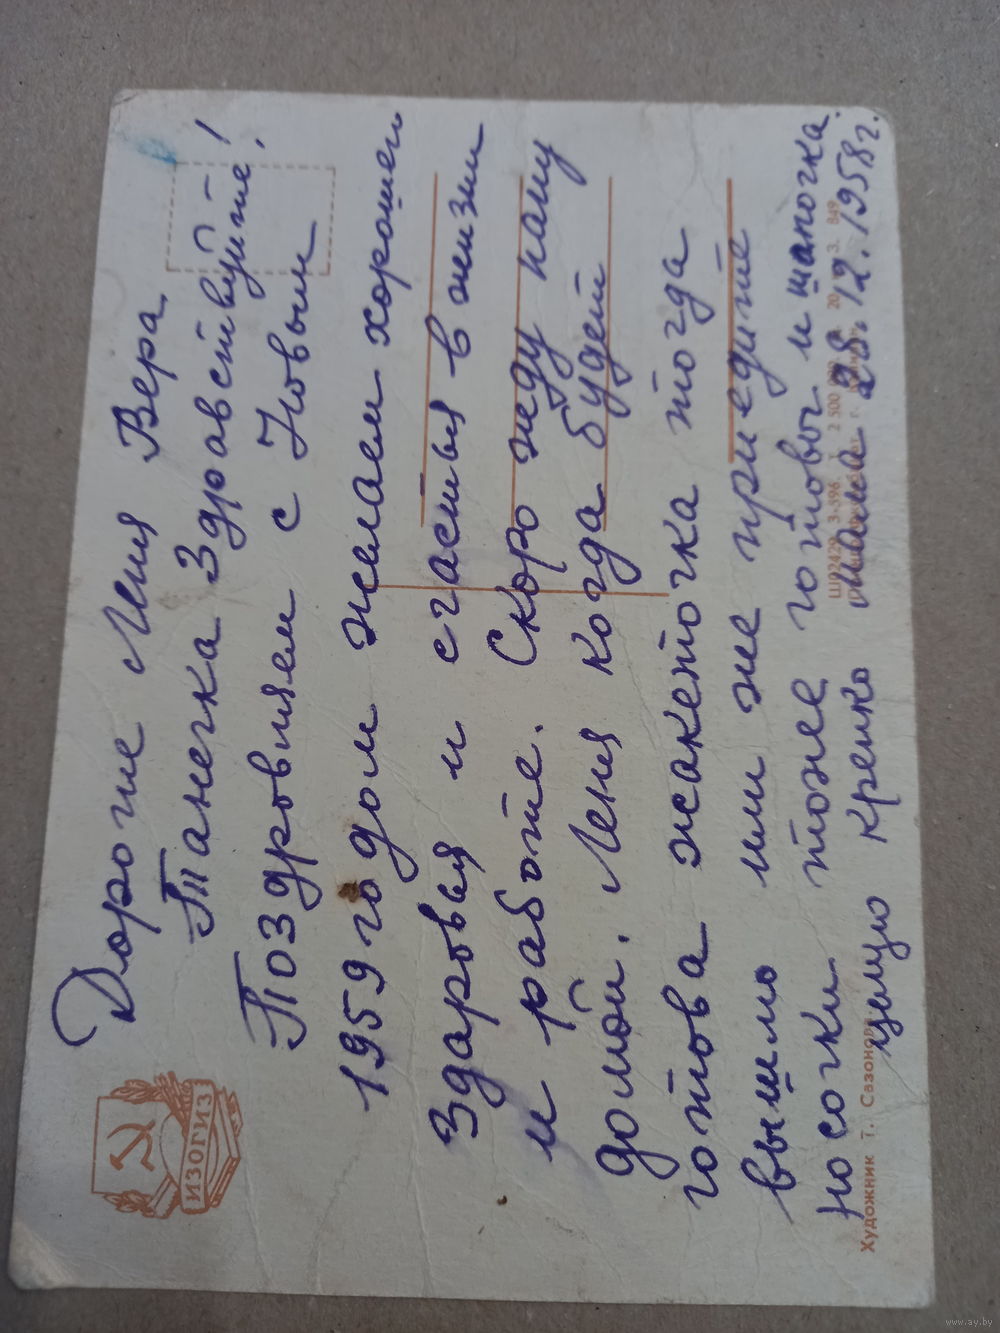 Дорогие Леня Вера
Танечка Здравствуйте!
Поздровляем с Новым
1959 годом желаем хорошего
Здаровья и счастья в жизни
и работе. Скоро жду папу
домой. Леня когда будет
готова жакеточка тогда
вышлю или же приедите
носочки тоже готовы и шапочка.
цылую крепко Мама 28.12.1958г.
ИЗОГИЗ
Художник Т. Сазонова
Ш02429 3-396 2 500 20 З. 849
www.ay.by